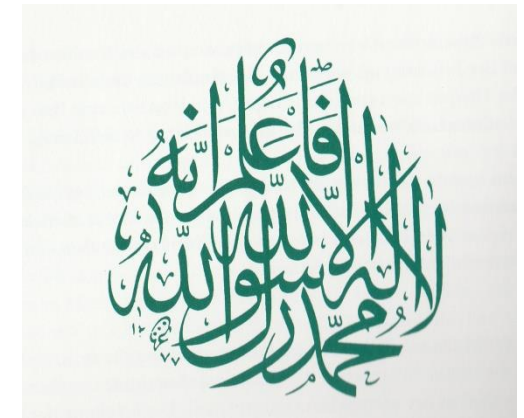 فَاعْلَمْ أَنَّهُ
لا إله إلا الله
محمد رسول الله